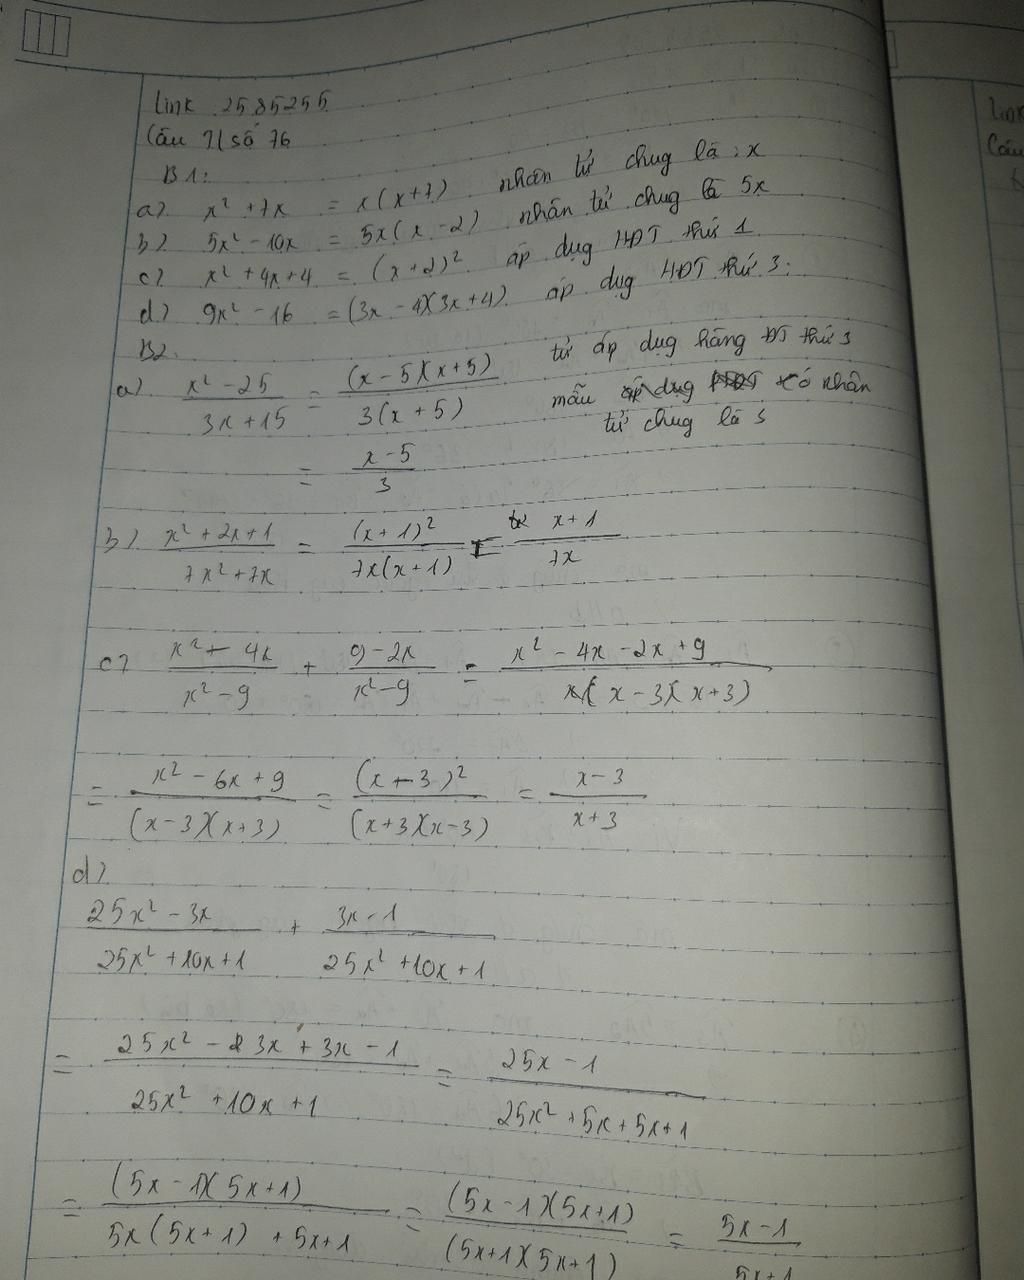 link 2585255
Câu 71 số 76
B1:
a) x² + 7x = x(x+7) nhân tử chug là : x
b) 5x² - 10x = 5x(x - 2) nhân tử chug là 5x
c) x² + 4x + 4 = (x+2)² áp dụg HĐT thứ 1
d) 9x² - 16 = (3x - 4)(3x + 4) áp dụg HĐT thứ 3
B2.
a) \frac{x² - 25}{3x + 15} = \frac{(x - 5)(x + 5)}{3(x + 5)} tử áp dụg hằng ĐT thứ 3
mẫu có nhân
tử chug là 3
= \frac{x - 5}{3}
b) \frac{x² + 2x + 1}{7x² + 7x} = \frac{(x + 1)²}{7x(x + 1)} = \frac{x + 1}{7x}
c) \frac{x² - 4x}{x² - 9} + \frac{9 - 2x}{x² - 9} = \frac{x² - 4x - 2x + 9}{(x - 3)(x + 3)}
= \frac{x² - 6x + 9}{(x - 3)(x + 3)} = \frac{(x - 3)²}{(x + 3)(x - 3)} = \frac{x - 3}{x + 3}
d)
\frac{25x² - 3x}{25x² + 10x + 1} + \frac{3x - 1}{25x² + 10x + 1}
= \frac{25x² - 3x + 3x - 1}{25x² + 10x + 1} = \frac{25x - 1}{25x² + 5x + 5x + 1}
= \frac{(5x - 1)(5x + 1)}{5x(5x + 1) + 5x + 1} = \frac{(5x - 1)(5x + 1)}{(5x + 1)(5x + 1)} = \frac{5x - 1}{5x + 1}